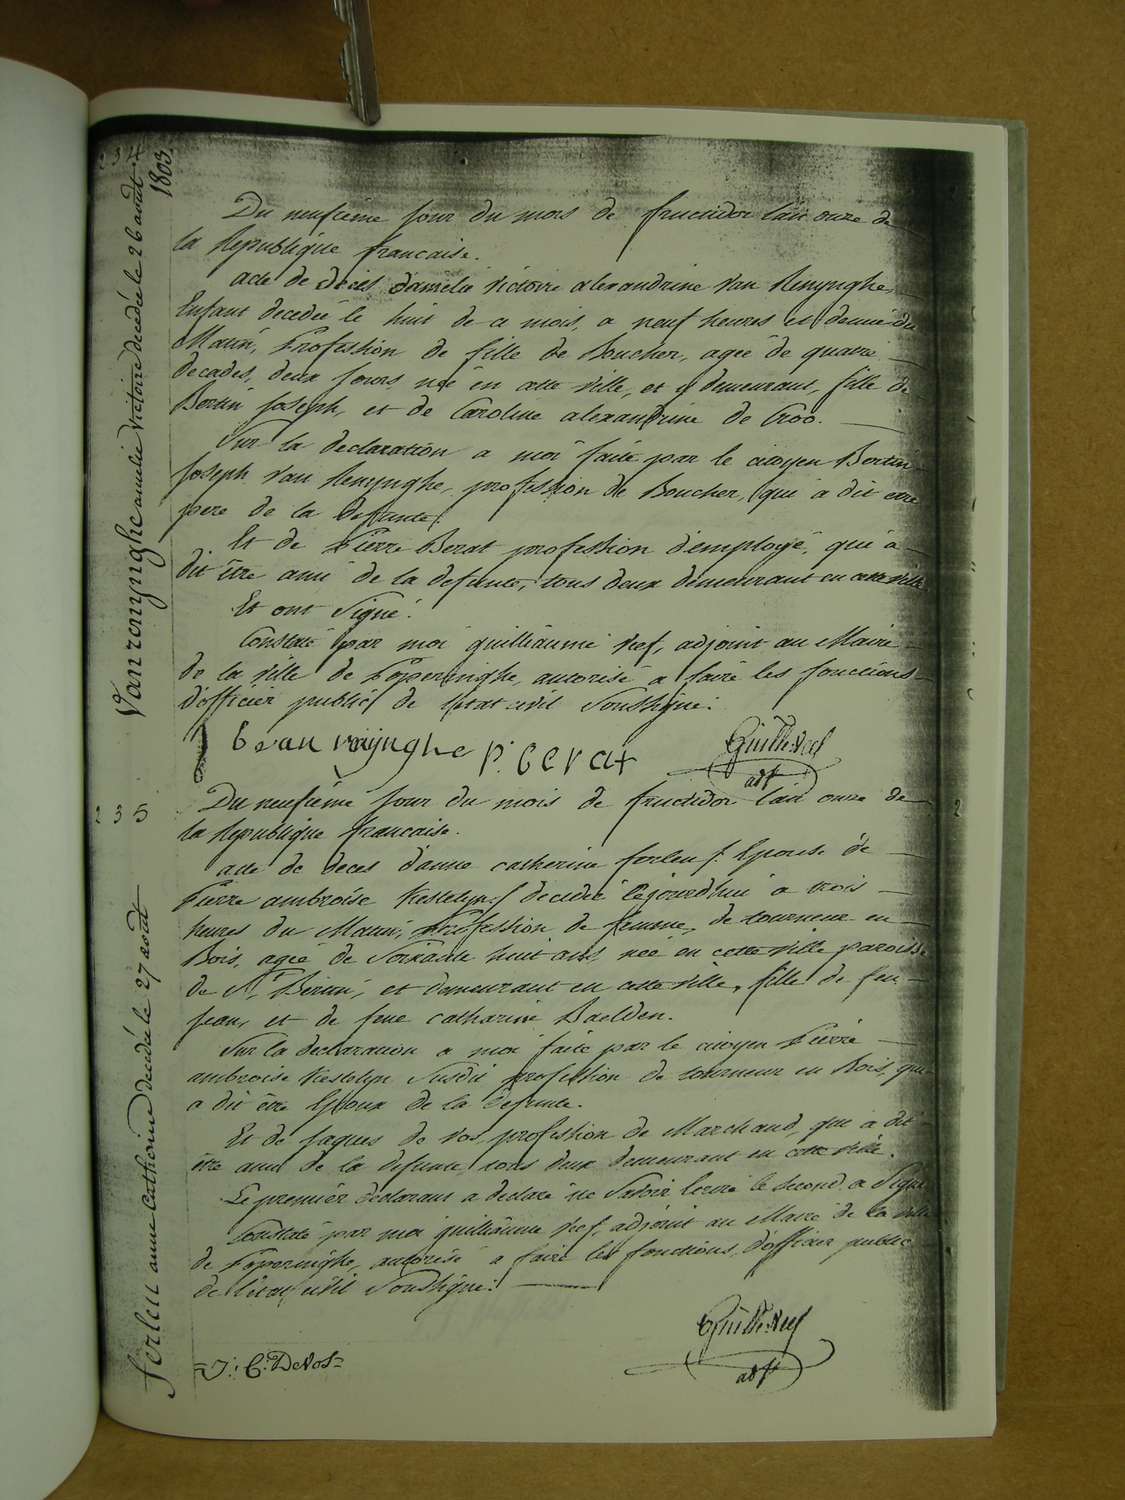 234
Vanrenynghe amelie Victoire decedée le 26 août
1803.
Du neufieme jour du mois de fructidor l'an onze de
la Republique francaise.
acte de deces d'amelia Victoire alexandrine Van Renynghe,
Enfant decedée le huit de ce mois, a neuf heures et demie du
Matin, Profession de fille de Boucher, agée de quatre
decades, deux jours née en cette ville, et y demeurant, fille de
Bertin Joseph, et de Caroline alexandrine de Croo.
Sur la declaration a moi faite par le citoyen Bertin
Joseph Van Renynghe, profession de Boucher, qui a dit etre
pere de la defunte.
Et de Pierre Berat profession d'employé, qui a
dit être ami de la defunte, tous deux demeurant en cette ville
Et ont Signé.
Constaté par moi guilliaume Nef, adjoint au Maire
de la ville de Poperinghe, autorisé a faire les fonctions
d'officier public de l'etat civil Soussigné.
b. van reynghe P. berat Guille. Neef
adjt
235
ferleu anne Catherine decedée le 27 août
Du neufieme jour du mois de fructidor l'an onze de
la Republique francaise.
acte de deces d'anne catherine forleu f. Epouse de
Pierre ambroise Kestelyn f decedée cejourdhui a trois
heures du Matin, Profession de femme, de tourneur en
Bois, agée de Soixante huit ans, née en cette ville paroisse
de St. Bertin, et demeurant en cette ville, fille de feu
jean, et de feue catharine Baelden.
Sur la declaration a moi faite par le citoyen Pierre
ambroise Kestelyn Susdit profession de tourneur en Bois, qui
a dit être Epoux de la defunte.
Et de jaques de vos profession de Marchand, qui a dit
être ami de la defunte tous deux demeurant en cette ville.
Le premier declarant a declaré ne Savoir Ecrire le Second a Signé
Constaté par moi guilliaume Nef, adjoint au Maire de la ville
de Poperinghe, autorisé a faire les fonctions, d'officier public
de l'etat civil Soussigné.
J: C: DeVos Guille. Neef
adjt